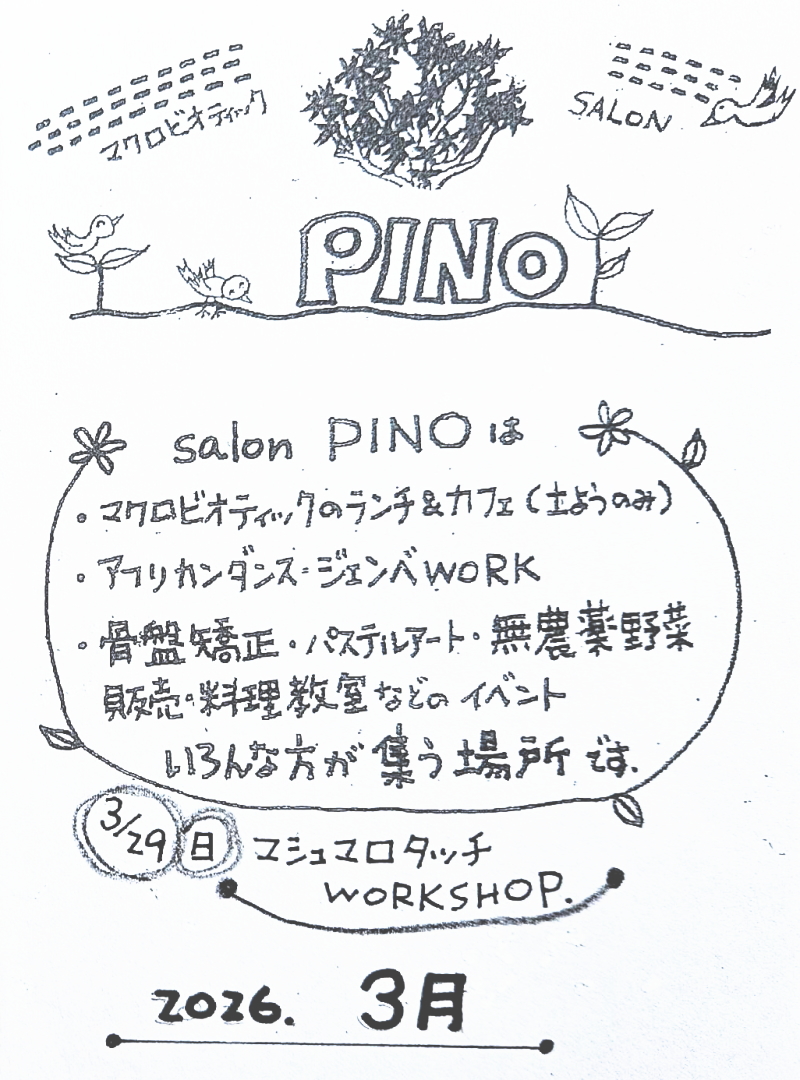 マクロビオティック
SALON
PINO
salon PINO は
・マクロビオティックのランチ&カフェ(土ようのみ)
・アフリカンダンス・ジェンベWORK
・骨盤矯正・パステルアート・無農薬野菜
販売・料理教室などのイベント
いろんな方が集う場所です.
3/29 日 マシュマロタッチ
WORKSHOP.
2026. 3月